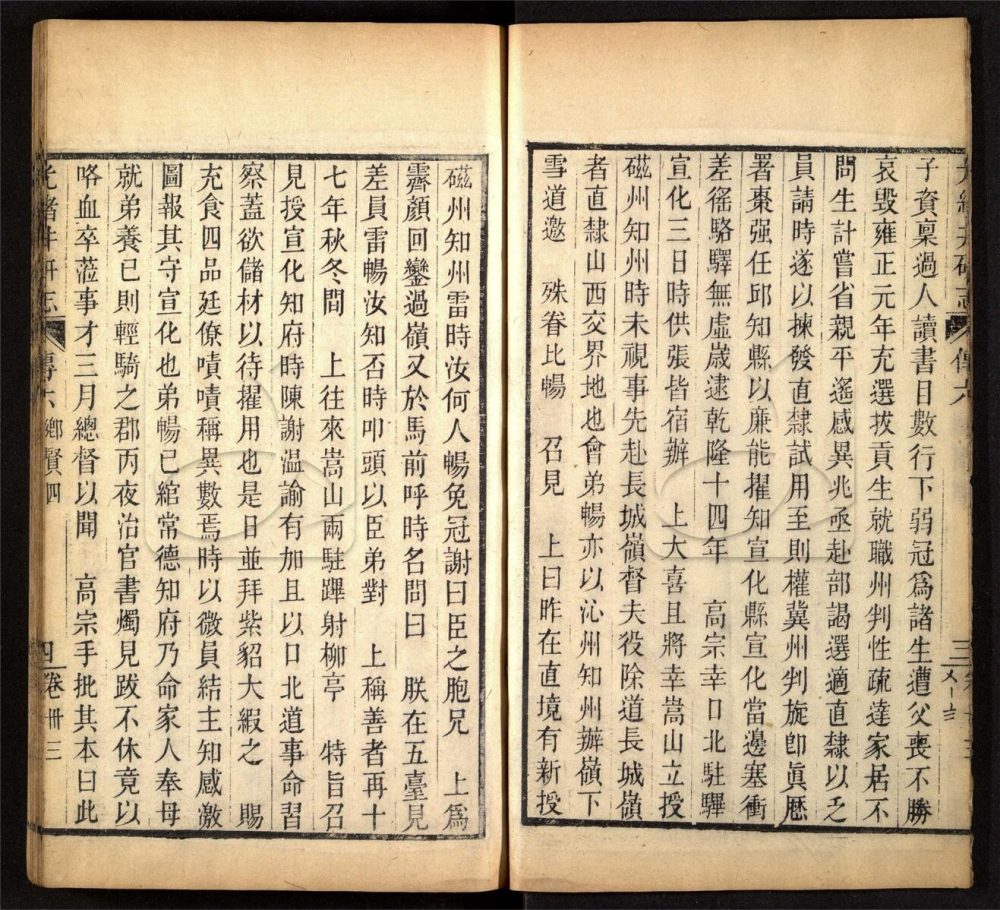 子資稟過人讀書日數行下弱冠爲諸生遭父喪不勝
哀毀雍正元年充選拔貢生就職州判性疏達家居不
問生計嘗省親平遙感異兆亟赴部謁選適直隸以乏
員請時遂以揀發直隸試用至則權冀州判旋卽眞歷
署棗强任邱知縣以廉能擢知宣化縣宣化當邊塞衝
差徭駱驛無虛歲逮乾隆十四年　高宗幸口北駐驆
宣化三日時供張皆宿辦　上大喜且將幸嵩山立授
磁州知州時未視事先赴長城嶺督夫役除道長城嶺
者直隸山西交界地也會弟暢亦以沁州知州辦嶺下
雪道邀　殊眷比暢　召見　上曰昨在直境有新授
磁州知州雷時汝何人暢免冠謝曰臣之胞兄　上爲
霽顏回鑾過嶺又於馬前呼時名問曰　朕在五臺見
差員雷暢汝知否時叩頭以臣弟對　上稱善者再十
七年秋冬間　上往來嵩山兩駐蹕射柳亭　特旨召
見授宣化知府時陳謝温諭有加且以口北道事命習
察蓋欲儲材以待擢用也是日並拜紫貂大緞之　賜
充食四品廷僚嘖嘖稱異數焉時以微員結主知感激
圖報其守宣化也弟暢已綰常德知府乃命家人奉母
就弟養已則輕騎之郡丙夜治官書燭見跋不休竟以
咯血卒蒞事才三月總督以聞　高宗手批其本曰此
光緒井研志
傳六
鄉賢四
四
卷卅三